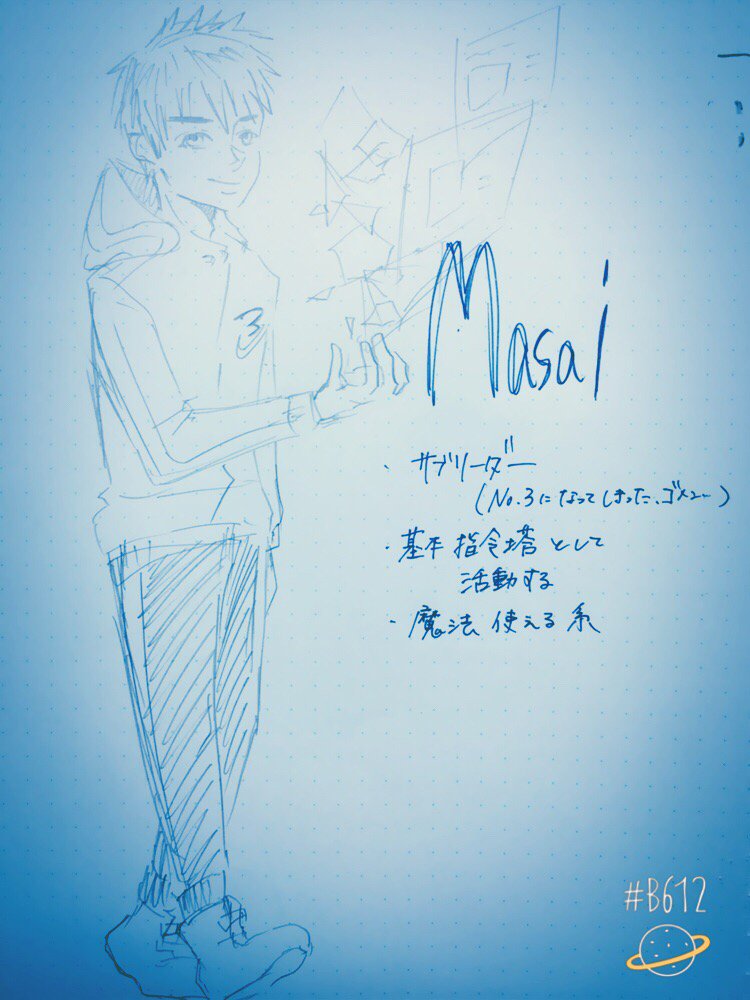 3
Masai
・サブリーダー
(No.3になってしまった、ゴメン…)
・基本 指令塔 として
活動する
・魔法 使える 系
#B612